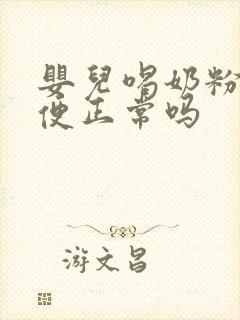 嬰兒喝奶粉
便正常吗
游文昌